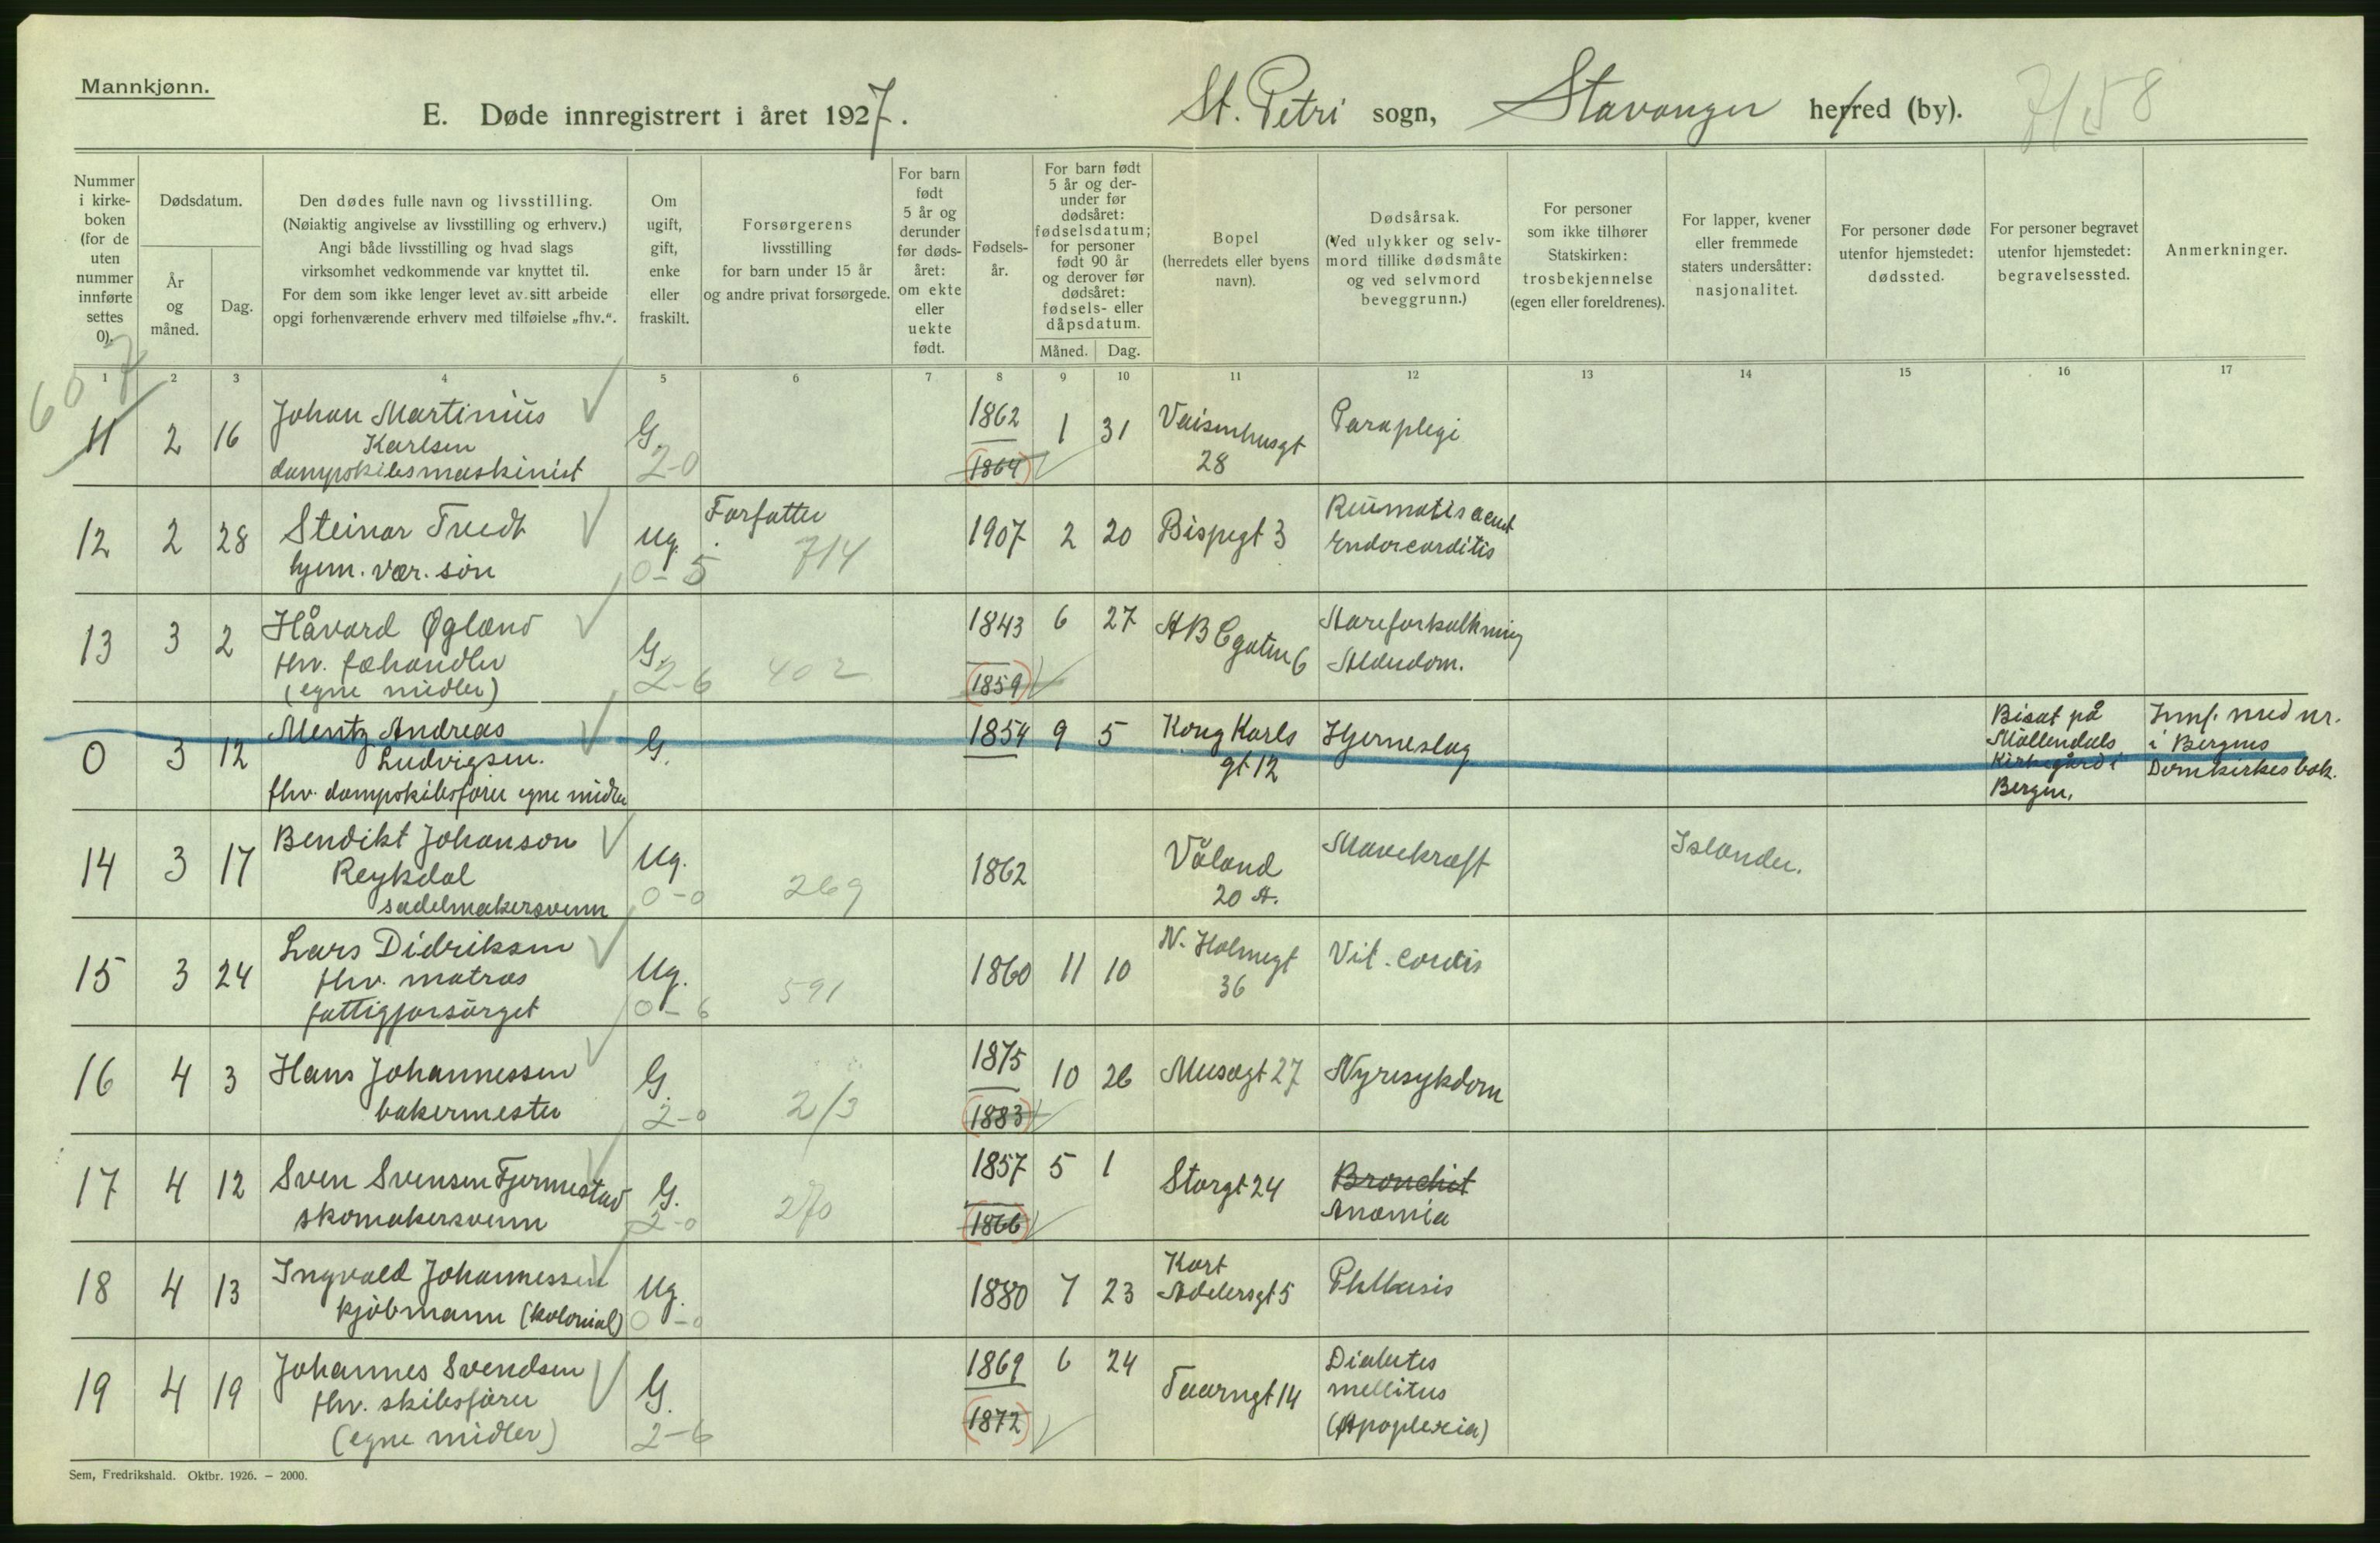 Mannkjønn.
E. Døde innregistrert i året 1927.
St. Petri sogn, Stavanger herred (by).
7/58
Nummer i kirke-boken (for de uten nummer innførte settes 0).
Dødsdatum.
År og måned.
Dag.
Den dødes fulle navn og livsstilling.
(Nøiaktig angivelse av livsstilling og erhverv.)
Angi både livsstilling og hvad slags
virksomhet vedkommende var knyttet til.
For dem som ikke lenger levet av sitt arbeide
opgi forhenværende erhverv med tilføielse „fhv.“.
Om ugift, gift, enke eller fraskilt.
Forsørgerens
livsstilling
for barn under 15 år
og andre privat forsørgede.
For barn født 5 år og derunder før døds-året: om ekte eller uekte født.
Fødsels-år.
For barn født 5 år og der-under før dødsåret: fødselsdatum; for personer født 90 år og derover før dødsåret: fødsels- eller dåpsdatum.
Måned.
Dag.
Bopel
(herredets eller byens
navn).
Dødsårsak.
(Ved ulykker og selv-
mord tillike dødsmåte
og ved selvmord
beveggrunn.)
For personer
som ikke tilhører
Statskirken:
trosbekjennelse
(egen eller foreldrenes).
For lapper, kvener
eller fremmede
staters undersåtter:
nasjonalitet.
For personer døde
utenfor hjemstedet:
dødssted.
For personer begravet
utenfor hjemstedet:
begravelsessted.
Anmerkninger.
1 2 3 4 5 6 7 8 9 10 11 12 13 14 15 16 17
607
11 2 16 Johan Martinius
Karlsen
dampskibsmaskinist
G. 2-0
1862
1864
1 31
Vaisenhusgt
28
Paraplegi
12 2 28 Steinar Tvedt
hjem. vær. søn
Ug. 0-5
Forfatter
714
1907 2 20
Bispegt 3
Reumatis acut
Endocarditis
13 3 2 Håvard Øgland
fhv. fæhandler
(egne midler)
G. 2-6
402
1843
1859
6 27
ABCgaten 6
Åreforkalkning
Alderdom.
0 3 12 Mentz Andreas
Ludvigsen.
fhv. dampskibsfører egne midler
G.
1854 9 5
Kong Karls
gt 12
Hjerneslag
Bisat på
Møllendals
Kirkegård i
Bergen.
Innf. med nr.
i Bergens
Domkirkes bok.
14 3 17 Bendikt Johanson
Reykdal
sadelmakersvenn
Ug. 0-0
269
1862
Våland
20 A.
Mavekræft
Islander.
15 3 24 Lars Didriksen
fhv. matros
fattigforsørget
Ug. 0-6
591
1860 11 10
N. Holmegt
36
Vit. cordis
16 4 3 Hans Johannessen
bakermester
G. 2-0
213
1875
1883
10 26
Musegt 27
Nyresykdom
17 4 12 Sven Svensen Fjermestad
skomakersvenn
G. 2-0
270
1857
1866
5 1
Storgt 24
Bronchit
Anæmia
18 4 13 Ingvald Johannessen
kjøbmann (kolonial)
Ug. 0-0
1880 7 23
Kort
Adelersgt 5
Phthisis
19 4 19 Johannes Svendsen
fhv. skibsfører
(egne midler)
G. 2-6
1869
1872
6 24
Taarngt 14
Diabetes
mellitus
(Apoplexia)
Sem, Fredrikshald. Oktbr. 1926. – 2000.